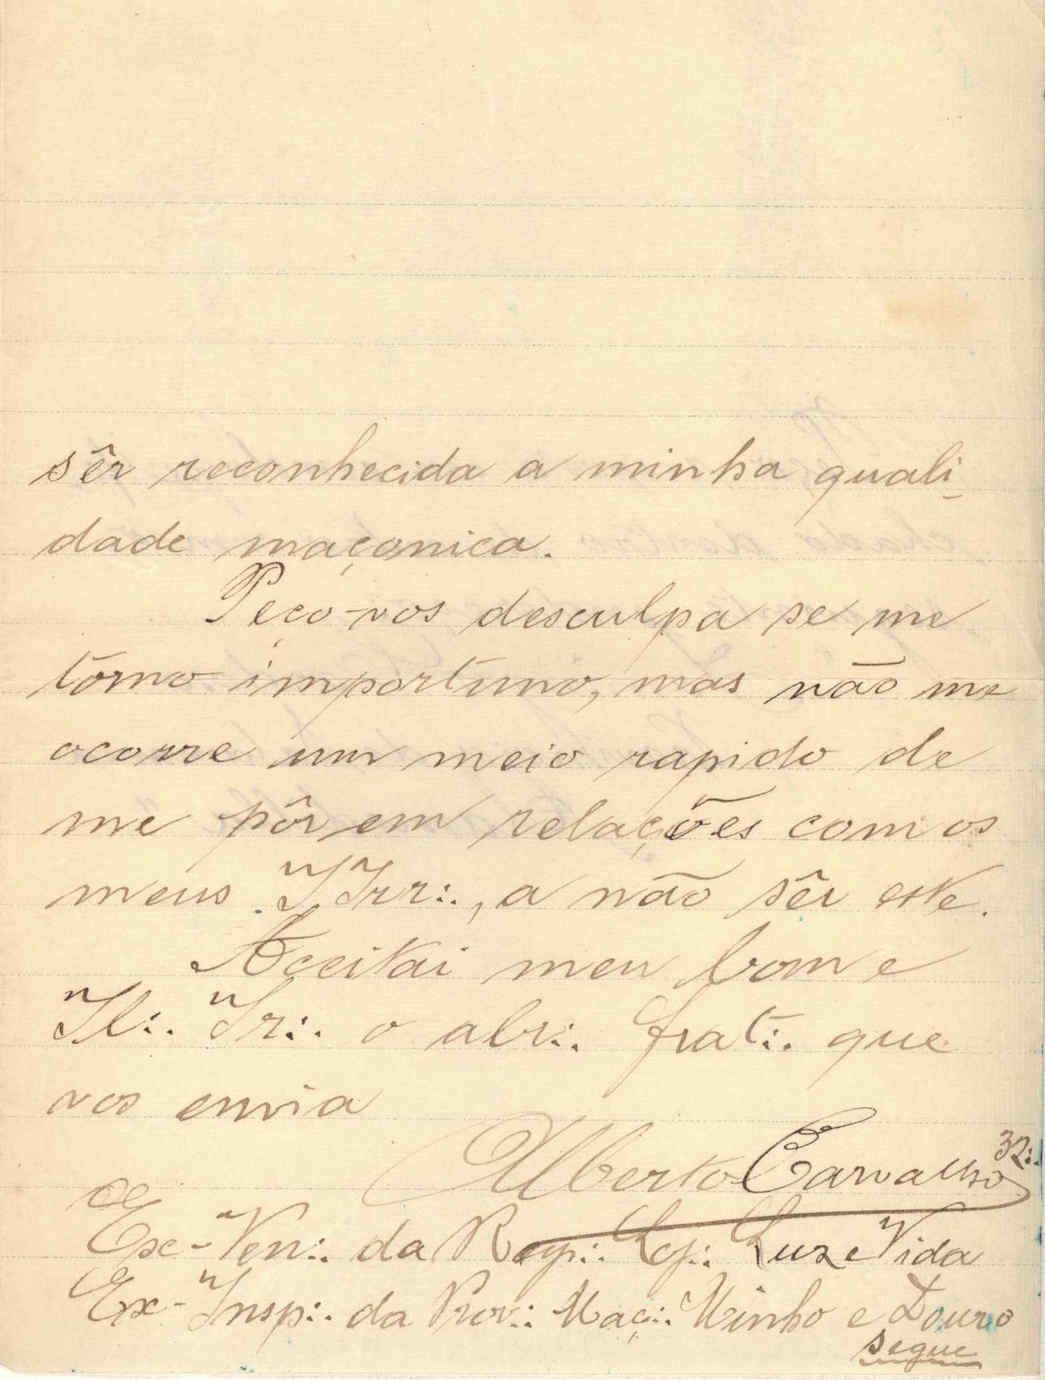 sêr reconhecida a minha quali-
dade maçonica.
Peço-vos desculpa se me
tórno importuno, mas não me
ocorre um meio rapido de
me pôr em relações com os
meus IIrr∴, a não sêr este.
Acceitai meu bom e
Il∴ Ir∴ o abr∴ frat∴ que
vos envia
Alberto Carvalho 32∴
Ex-Ven∴ da Resp∴ Loj∴ Luz e Vida
Ex-Insp∴ da Prov∴ Maç∴ Minho e Douro
segue